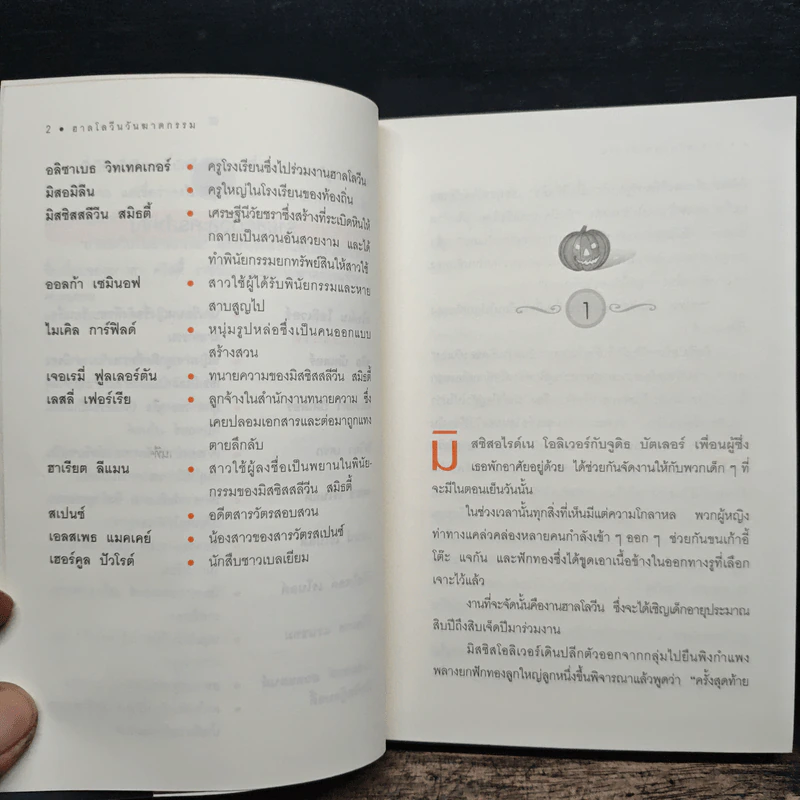 2 • ฮาลโลวีนวันฆาตกรรม
อลิซาเบธ วิทเทคเกอร์ • ครูโรงเรียนซึ่งไปร่วมงานฮาลโลวีน
มิสอมิลีน • ครูใหญ่ในโรงเรียนของท้องถิ่น
มิสซิสสลีวีน สมิธตี้ • เศรษฐีนีวัยชราซึ่งสร้างที่ระเบิดหินให้
กลายเป็นสวนอันสวยงาม และได้
ทำพินัยกรรมยกทรัพย์สินให้สาวใช้
ออลก้า เซมินอฟ • สาวใช้ผู้ได้รับพินัยกรรมและหาย
สาบสูญไป
ไมเคิล การ์ฟิลด์ • หนุ่มรูปหล่อซึ่งเป็นคนออกแบบ
สร้างสวน
เจอเรมี่ ฟูลเลอร์ตัน • ทนายความของมิสซิสสลีวีน สมิธตี้
เลสลี่ เฟอร์เรีย • ลูกจ้างในสำนักงานทนายความ ซึ่ง
เคยปลอมเอกสารและต่อมาถูกแทง
ตายลึกลับ
ฮาเรียต ลีแมน • สาวใช้ผู้ลงชื่อเป็นพยานในพินัย-
กรรมของมิสซิสสลีวีน สมิธตี้
สเปนซ์ • อดีตสารวัตรสอบสวน
เอลสเพธ แมคเคย์ • น้องสาวของสารวัตรสเปนซ์
เฮอร์คูล ปัวโรต์ • นักสืบชาวเบลเยียม
1
มิสซิสอไรด์เน โอลิเวอร์กับจูดิธ บัตเลอร์ เพื่อนผู้ซึ่ง
เธอพักอาศัยอยู่ด้วย ได้ช่วยกันจัดงานให้กับพวกเด็ก ๆ ที่
จะมีในตอนเย็นวันนั้น
ในช่วงเวลานั้นทุกสิ่งที่เห็นมีแต่ความโกลาหล พวกผู้หญิง
ท่าทางแคล่วคล่องหลายคนกำลังเข้า ๆ ออก ๆ ช่วยกันขนเก้าอี้
โต๊ะ แจกัน และฟักทองซึ่งได้ขูดเอาเนื้อข้างในออกทางรูที่เลือก
เจาะไว้แล้ว
งานที่จะจัดนั้นคืองานฮาลโลวีน ซึ่งจะได้เชิญเด็กอายุประมาณ
สิบปีถึงสิบเจ็ดปีมาร่วมงาน
มิสซิสโอลิเวอร์เดินปลีกตัวออกจากกลุ่มไปยืนพิงกำแพง
พลางยกฟักทองลูกใหญ่ลูกหนึ่งขึ้นพิจารณาแล้วพูดว่า "ครั้งสุดท้าย